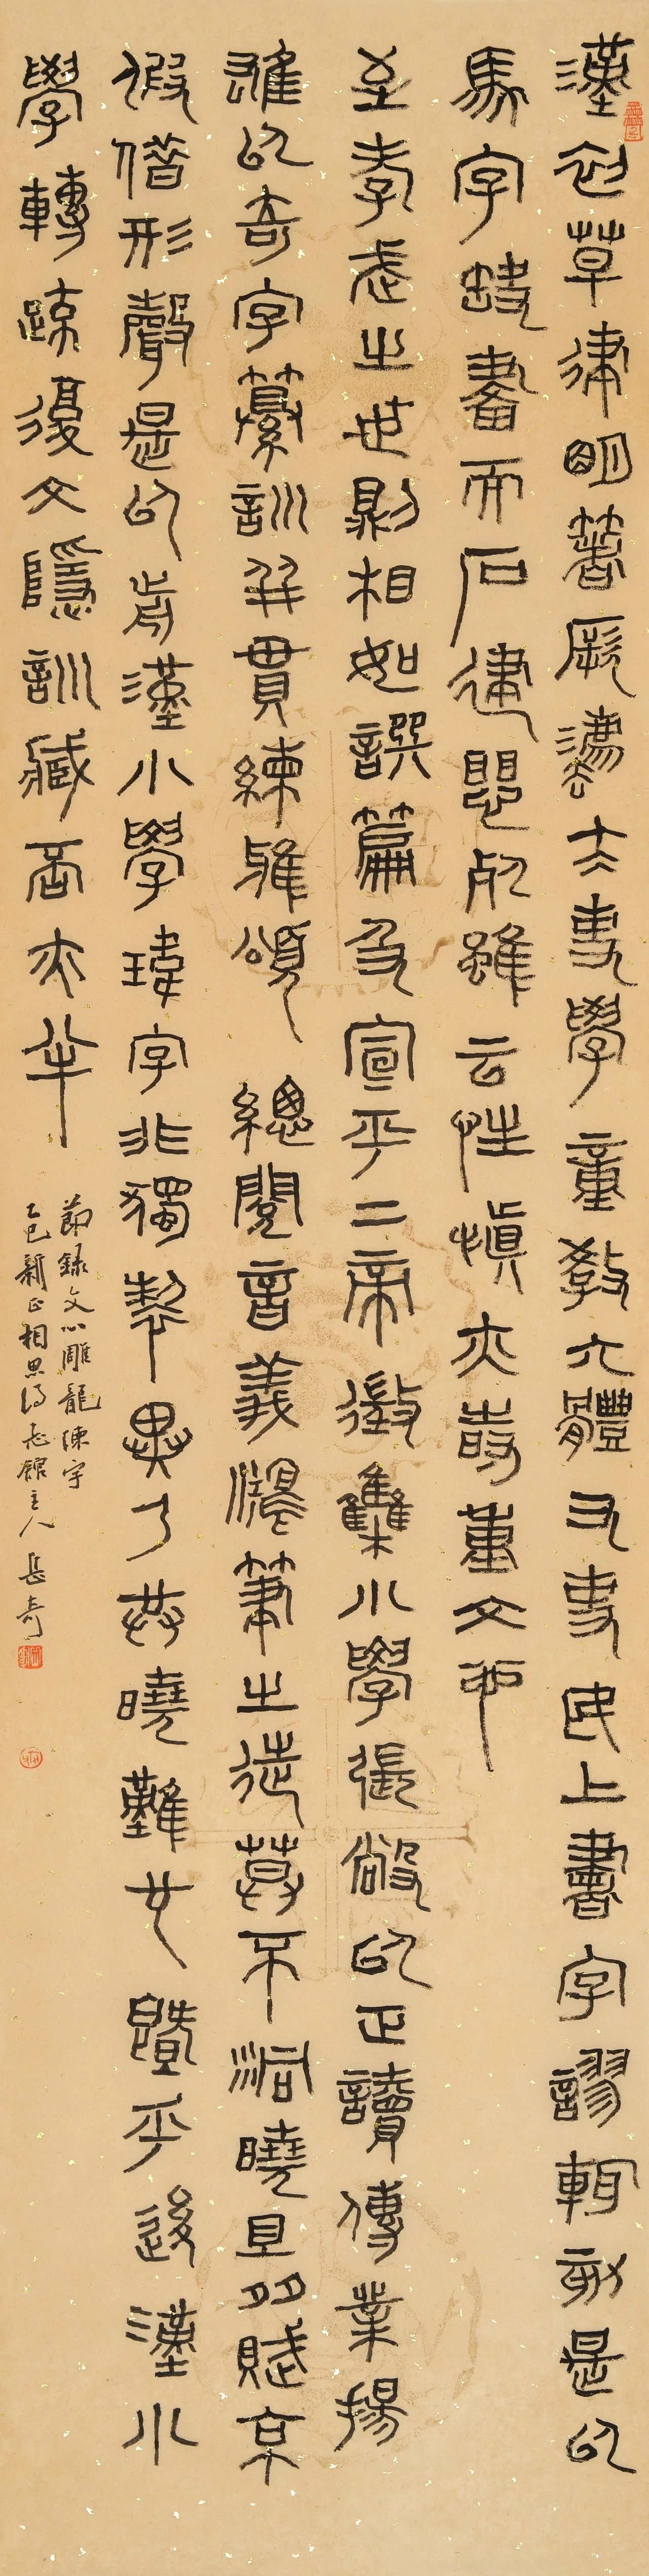 漢初草律明著厥灋太史學童教六體又吏民上書字謬輒劾是以
馬字缺畫而石建懼死雖云性慎亦時重文也
至孝武之世則相如譔篇及宣平二帝徵雧小學張敞以正讀傳業揚
雄以奇字纂訓並貫練雅頌總閱音義鴻筆之徒莫不洞曉且多賦京
假借形聲是以前漢小學瑋字非獨製異乃共曉難也暨乎後漢小
學轉疏復文隱訓臧否亦半
節録文心雕龍練字
乙巳新正相思館主人